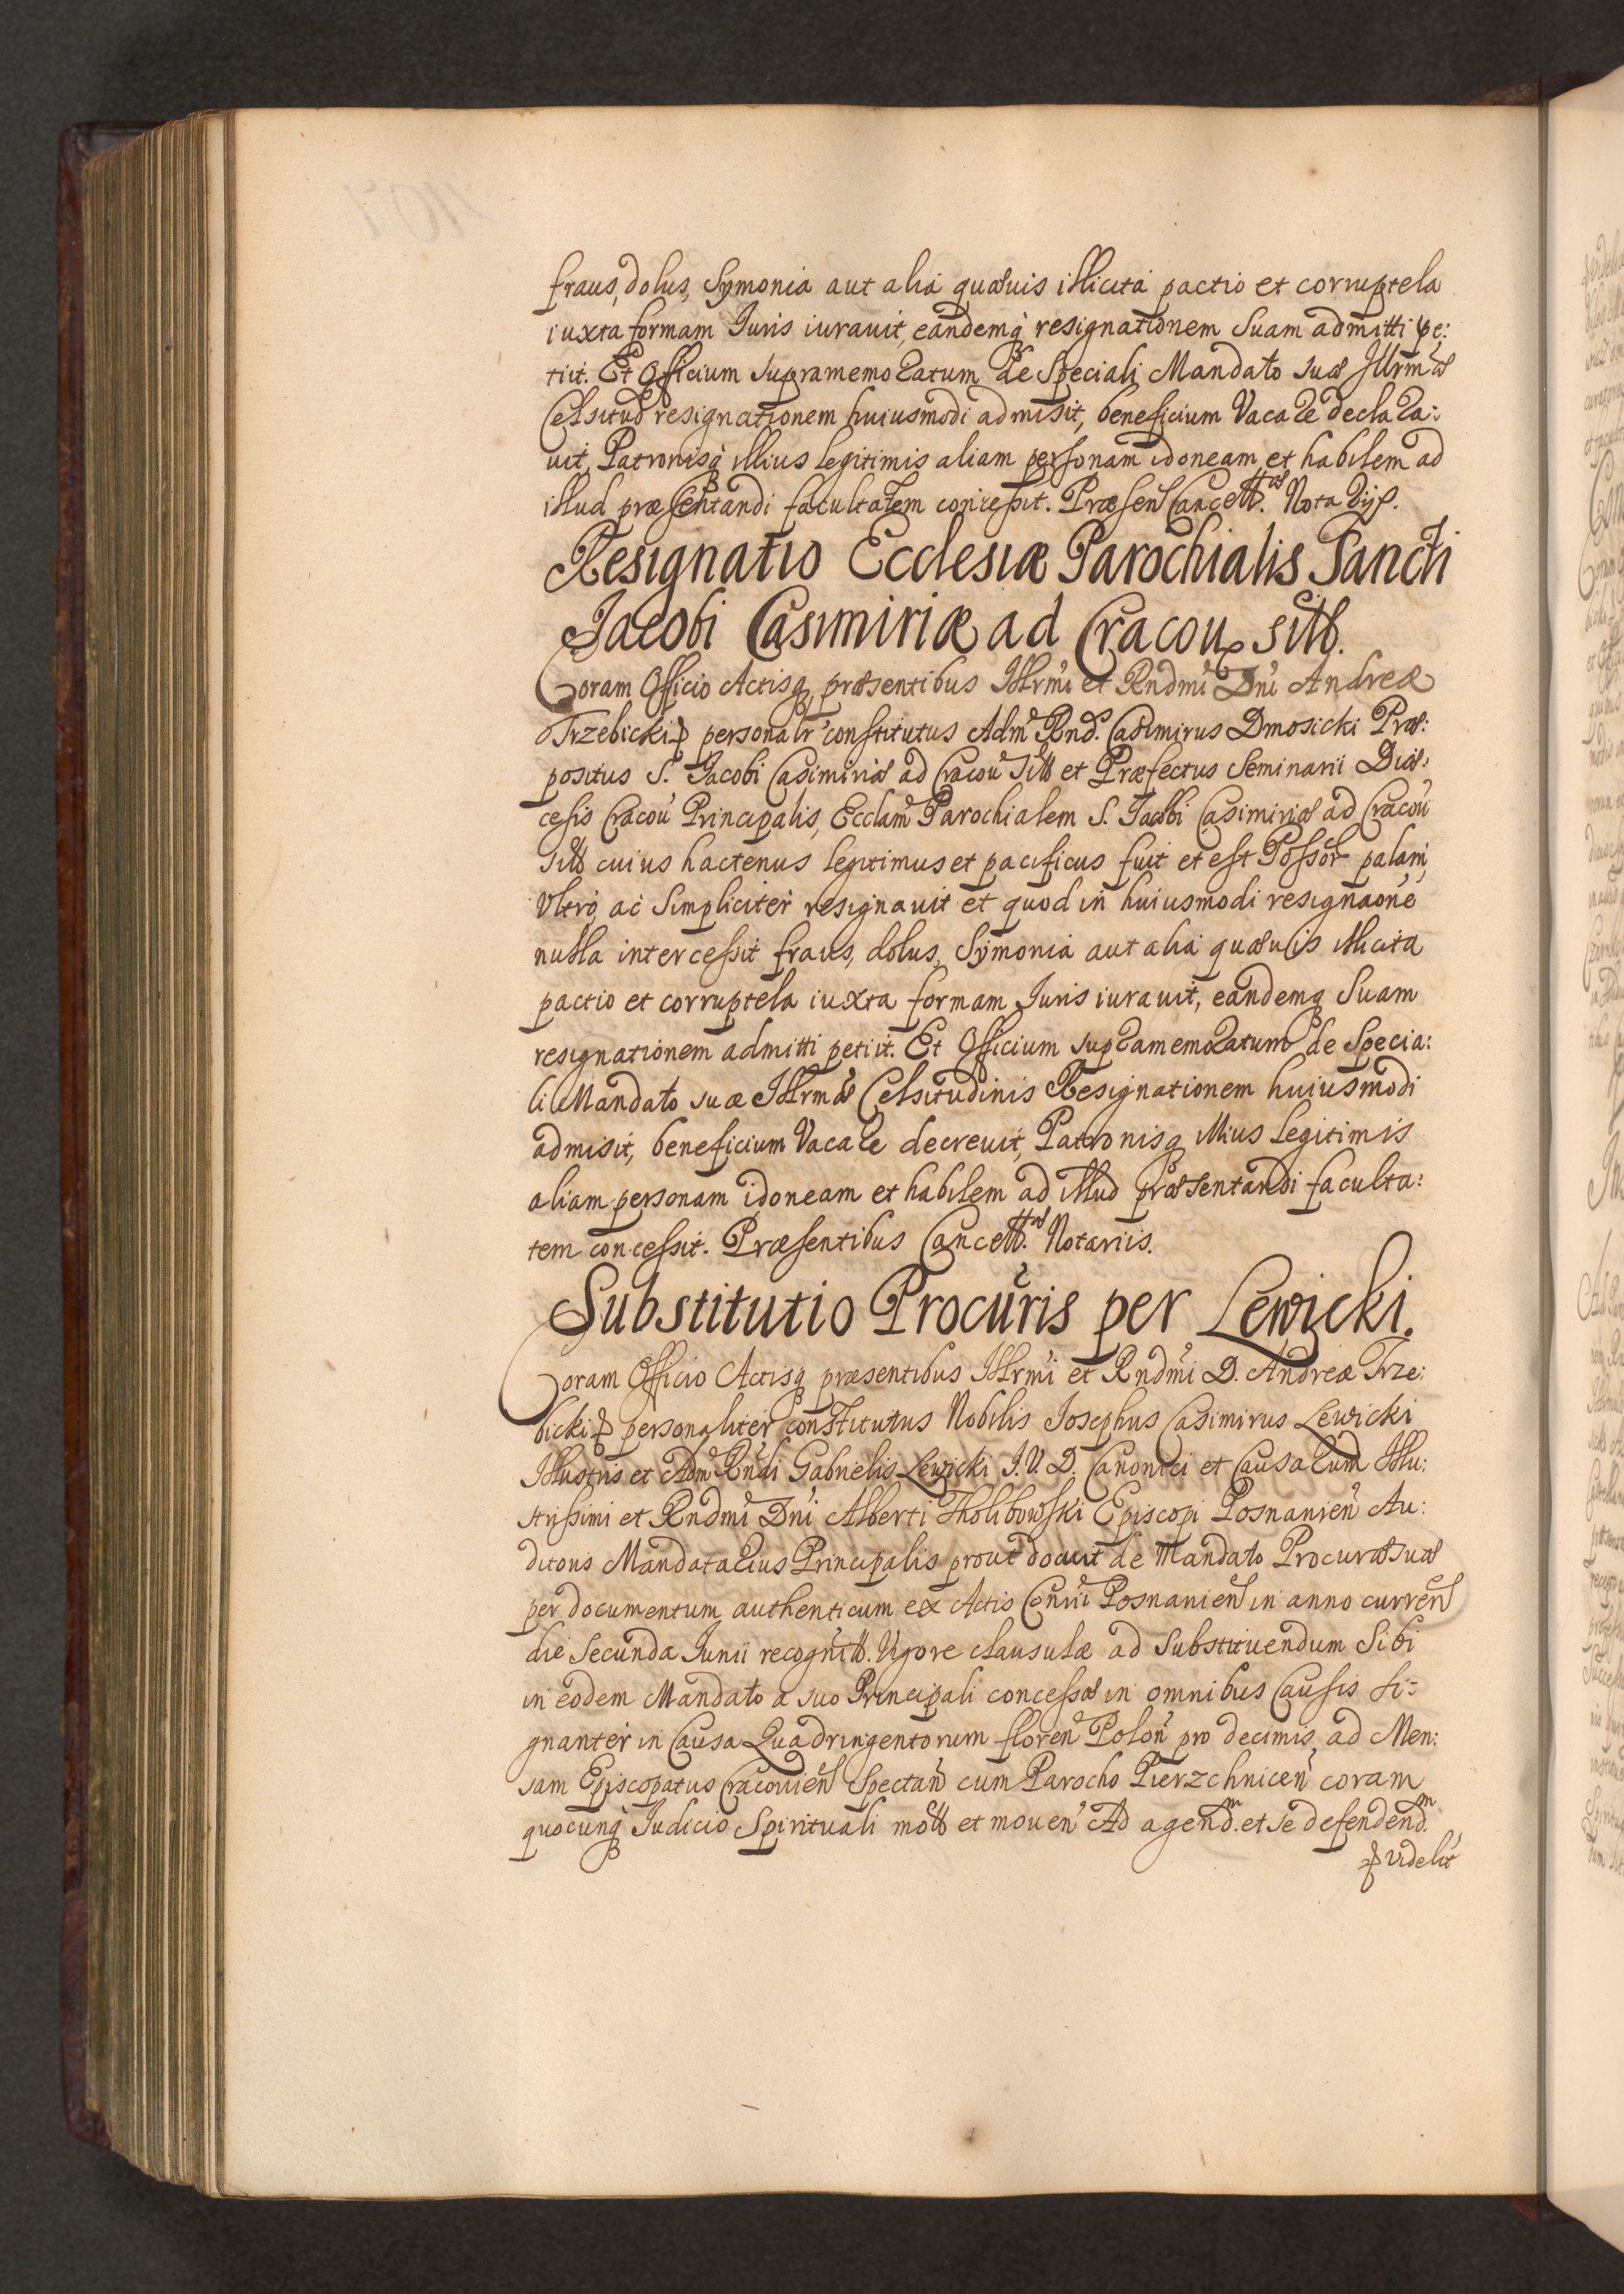 fraus, dolus, Symonia aut alia quæuis illicita pactio et corruptela
iuxta formam Iuris iurauit, eandemq resignationem Suam admitti pe:
tiit. Et Officium supramemoratum de Speciali Mandato suæ Illrmæ
Celsitud resignationem huiusmodi admisit, beneficium Vacare declara:
uit, Patronisq illius legitimis aliam personam idoneam et habilem ad
illud præsentandi facultatem concessit. Præsen Cancell. Nota
Resignatio Ecclesiæ Parochialis Sancti
Jacobi Casimiriæ ad Cracou sitt.
Coram Officio Actisq præsentibus Illrmi et Rndmi Dni Andreæ
Trzebicki personalr constitutus Adm Rnd. Casimirus Dmosicki Præ:
positus S. Jacobi Casimiriæ ad Cracou sitt et Præfectus Seminarii Diæ:
cesis Cracou Principalis, Ecclam Parochialem S. Jacobi Casimiriæ ad Cracou
sitt cuius hactenus legitimus et pacificus fuit et est Possor palam,
Vltro, ac Simpliciter resignauit et quod in huiusmodi resignaone
nulla intercessit fraus, dolus, Symonia aut alia quæuis illicita
pactio et corruptela iuxta formam Iuris iurauit, eandemq Suam
resignationem admitti petiit. Et Officium supramemoratum de Specia:
li Mandato suæ Illrmæ Celsitudinis Resignationem huiusmodi
admisit, beneficium Vacare decreuit, Patronisq illius legitimis
aliam personam idoneam et habilem ad illud præsentandi faculta:
tem concessit. Præsentibus Cancell. Notariis.
Substitutio Procuris per Lewicki.
Coram Officio Actisq præsentibus Illrmi et Rndmi D. Andreæ Trze:
bicki personaliter constitutus Nobilis Josephus Casimirus Lewicki
Illustris et Adm Rndi Gabrielis Lewicki J. V. D. Canonici et Causarum Illu:
strissimi et Rndmi Dni Alberti Tholibowski Episcopi Posnanien Au:
ditoris Mandatarius Principalis prout docuit de Mandato Procuræ suæ
per documentum authenticum ex Actis Posnanien in anno curren
die Secunda Iunii recognitt. Vigore clausulæ ad Substituendum Sibi
in eodem Mandato a suo Principali concessæ in omnibus Causis si:
gnanter in Causa Quadringentorum floren Polon pro decimis, ad Men:
sam Episcopatus Cracouien Spectan cum Parocho Pierzchnicen coram
quocunq Judicio Spirituali mott et mouen Ad agend. et se defendend.
videlit